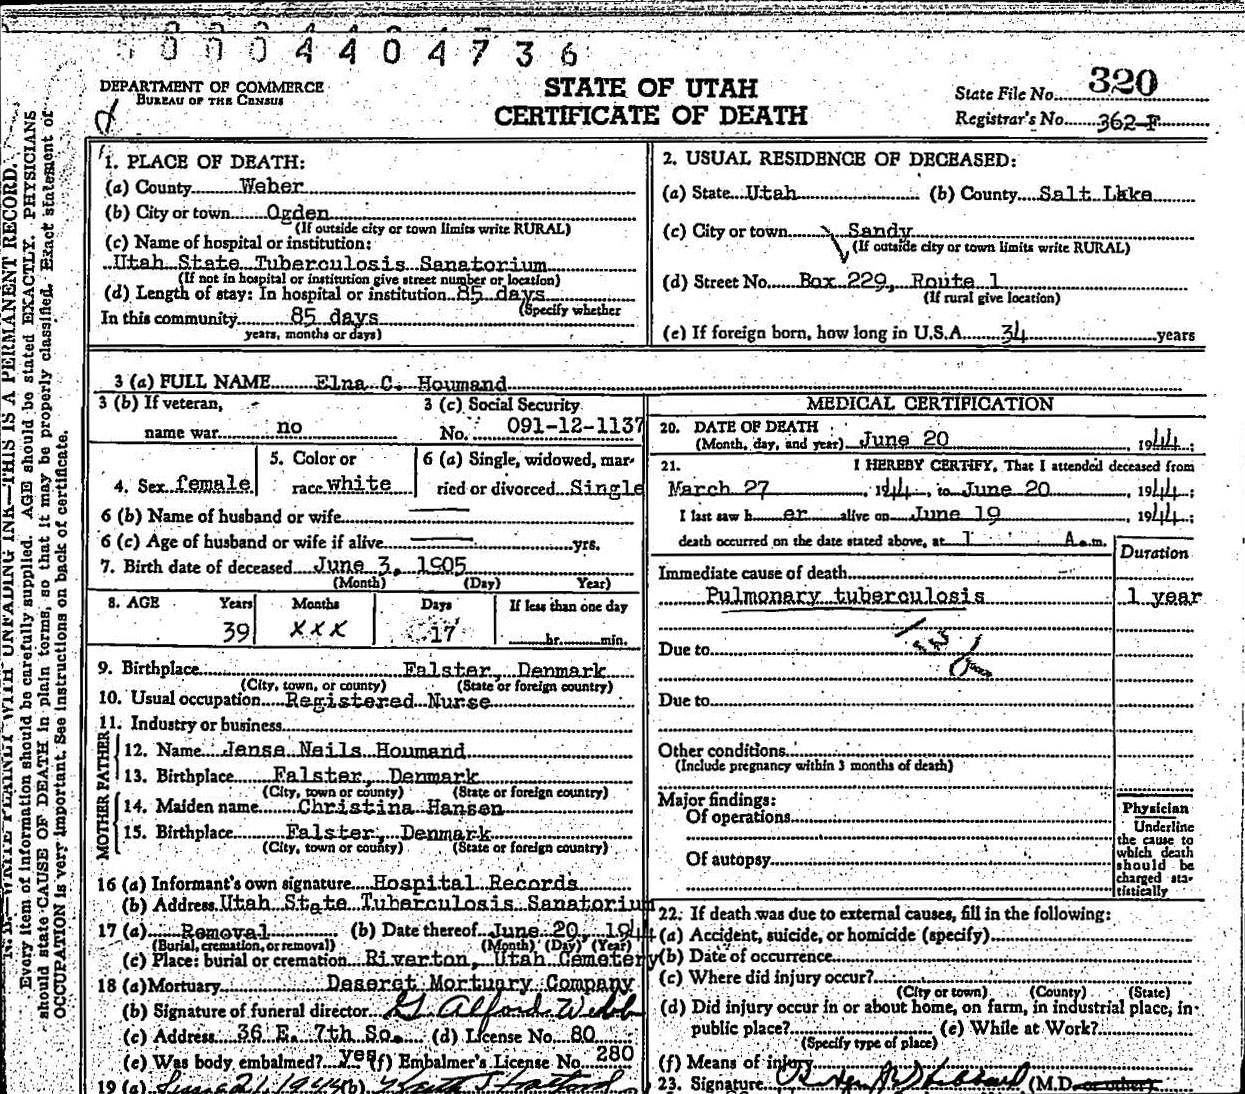 0004404736
DEPARTMENT OF COMMERCE
BUREAU OF THE CENSUS
STATE OF UTAH
CERTIFICATE OF DEATH
State File No. 320
Registrar's No. 362-F
N. B.—WRITE PLAINLY WITH UNFADING INK—THIS IS A PERMANENT RECORD.
Every item of information should be carefully supplied. AGE should be stated EXACTLY. PHYSICIANS
should state CAUSE OF DEATH in plain terms, so that it may be properly classified. Exact statement of
OCCUPATION is very important. See instructions on back of certificate.
1. PLACE OF DEATH:
(a) County Weber
(b) City or town Ogden
(If outside city or town limits write RURAL)
(c) Name of hospital or institution:
Utah State Tuberculosis Sanatorium
(If not in hospital or institution give street number or location)
(d) Length of stay: In hospital or institution 85 days
(Specify whether
In this community 85 days
years, months or days)
2. USUAL RESIDENCE OF DECEASED:
(a) State Utah (b) County Salt Lake
(c) City or town Sandy
(If outside city or town limits write RURAL)
(d) Street No. Box 229, Route 1
(If rural give location)
(e) If foreign born, how long in U.S.A. 34 years
3 (a) FULL NAME Elna C. Houmand
3 (b) If veteran,
name war no
3 (c) Social Security
No. 091-12-1137
4. Sex female
5. Color or
race white
6 (a) Single, widowed, mar-
ried or divorced Single
6 (b) Name of husband or wife
6 (c) Age of husband or wife if alive yrs.
7. Birth date of deceased June 3, 1905
(Month) (Day) Year)
8. AGE Years Months Days If less than one day
39 XXX 17 hr. min.
9. Birthplace Falster, Denmark
(City, town, or county) (State or foreign country)
10. Usual occupation Registered Nurse
11. Industry or business
FATHER
12. Name Jense Neils Houmand
13. Birthplace Falster, Denmark
(City, town or county) (State or foreign country)
MOTHER
14. Maiden name Christina Hansen
15. Birthplace Falster, Denmark
(City, town or county) (State or foreign country)
16 (a) Informant's own signature Hospital Records
(b) Address Utah State Tuberculosis Sanatorium
17 (a) Removal (b) Date thereof June 20, 1944
(Burial, cremation, or removal) (Month) (Day) (Year)
(c) Place: burial or cremation Riverton, Utah Cemetery
18 (a) Mortuary Deseret Mortuary Company
(b) Signature of funeral director G. Alford Webb
(c) Address 36 E. 7th So. (d) License No. 80
(e) Was body embalmed? yes (f) Embalmer's License No. 280
19 (a) June 21, 1944 (b)
MEDICAL CERTIFICATION
20. DATE OF DEATH
(Month, day, and year) June 20 1944;
21. I HEREBY CERTIFY, That I attended deceased from
March 27, 1944, to June 20, 1944;
I last saw her alive on June 19, 1944;
death occurred on the date stated above, at 1 A.m.
Duration
Immediate cause of death
Pulmonary tuberculosis 1 year
Due to
Due to
Other conditions
(Include pregnancy within 3 months of death)
Major findings:
Of operations
Of autopsy
Physician
Underline
the cause to
which death
should be
charged sta-
tistically
22. If death was due to external causes, fill in the following:
(a) Accident, suicide, or homicide (specify)
(b) Date of occurrence
(c) Where did injury occur?
(City or town) (County) (State)
(d) Did injury occur in or about home, on farm, in industrial place, in
public place? (e) While at Work?
(Specify type of place)
(f) Means of injury
23. Signature (M.D. or other)